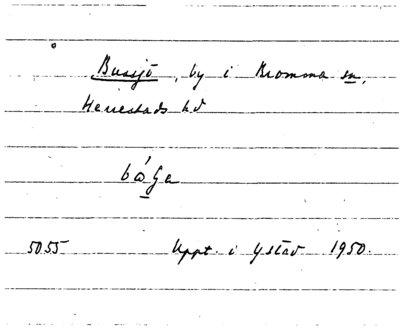 Bussjö, by i Bromma sn,
Herrestads hd
5055 Uppt. i Ystad 1950.